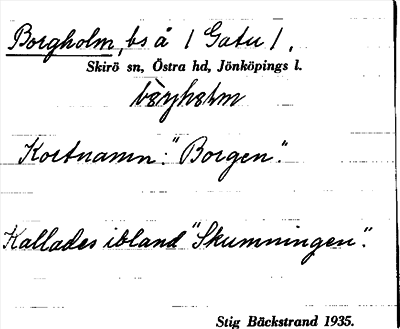 Borgholm, bs å /Gatu/.
Skirö sn, Östra hd, Jönköpings l.
Kortnamn: "Borgen".
Kallades ibland "Skumningen".
Stig Bäckstrand 1935.